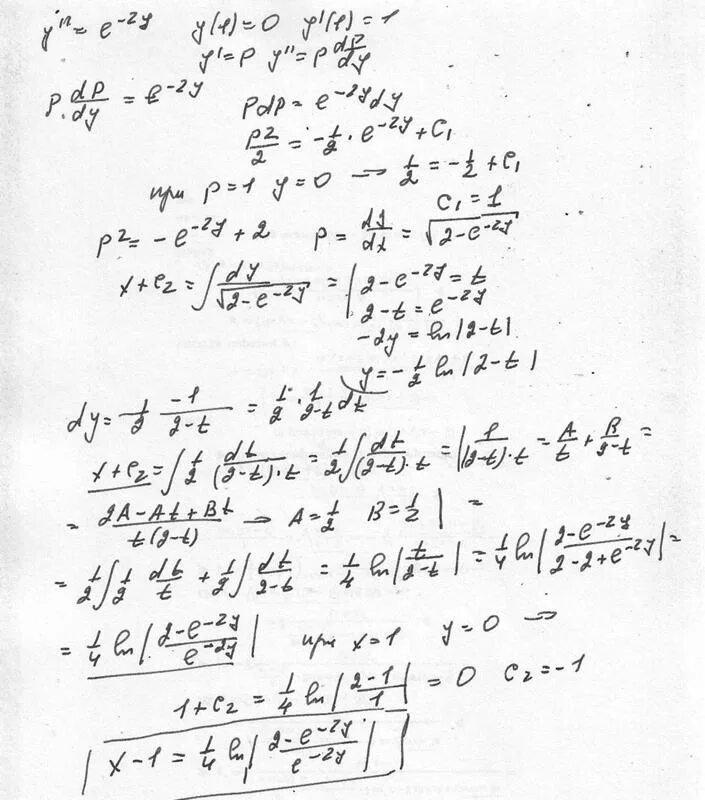 y'' = e^{-2y}   y(1) = 0   y'(1) = 1
y' = p   y'' = p dp/dy
p · dp/dy = e^{-2y}   pdp = e^{-2y}dy
p²/2 = -1/2 · e^{-2y} + C₁
при p=1 y=0 → 1/2 = -1/2 + C₁
C₁ = 1
p² = -e^{-2y} + 2   p = dy/dx = √(2-e^{-2y})
x + C₂ = ∫ dy/√(2-e^{-2y}) = | 2-e^{-2y} = t
2-t = e^{-2y}
-2y = ln|2-t|
y = -1/2 ln|2-t|
dy = 1/2 · -1/(2-t) = 1/2 · 1/(2-t) dt
x + C₂ = ∫ 1/2 dt/((2-t)·t) = 1/2 ∫ dt/((2-t)·t) = | 1/((2-t)·t) = A/t + B/(2-t) =
= (2A - At + Bt)/(t(2-t)) → A = 1/2   B = 1/2 | =
= 1/2 ∫ 1/2 dt/t + 1/2 ∫ dt/(2-t) = 1/4 ln|t/(2-t)| = 1/4 ln|(2-e^{-2y})/(2-2+e^{-2y})| =
= 1/4 ln|(2-e^{-2y})/e^{-2y}|   при x=1   y=0 →
1 + C₂ = 1/4 ln|(2-1)/1| = 0   C₂ = -1
x - 1 = 1/4 ln|(2-e^{-2y})/e^{-2y}|